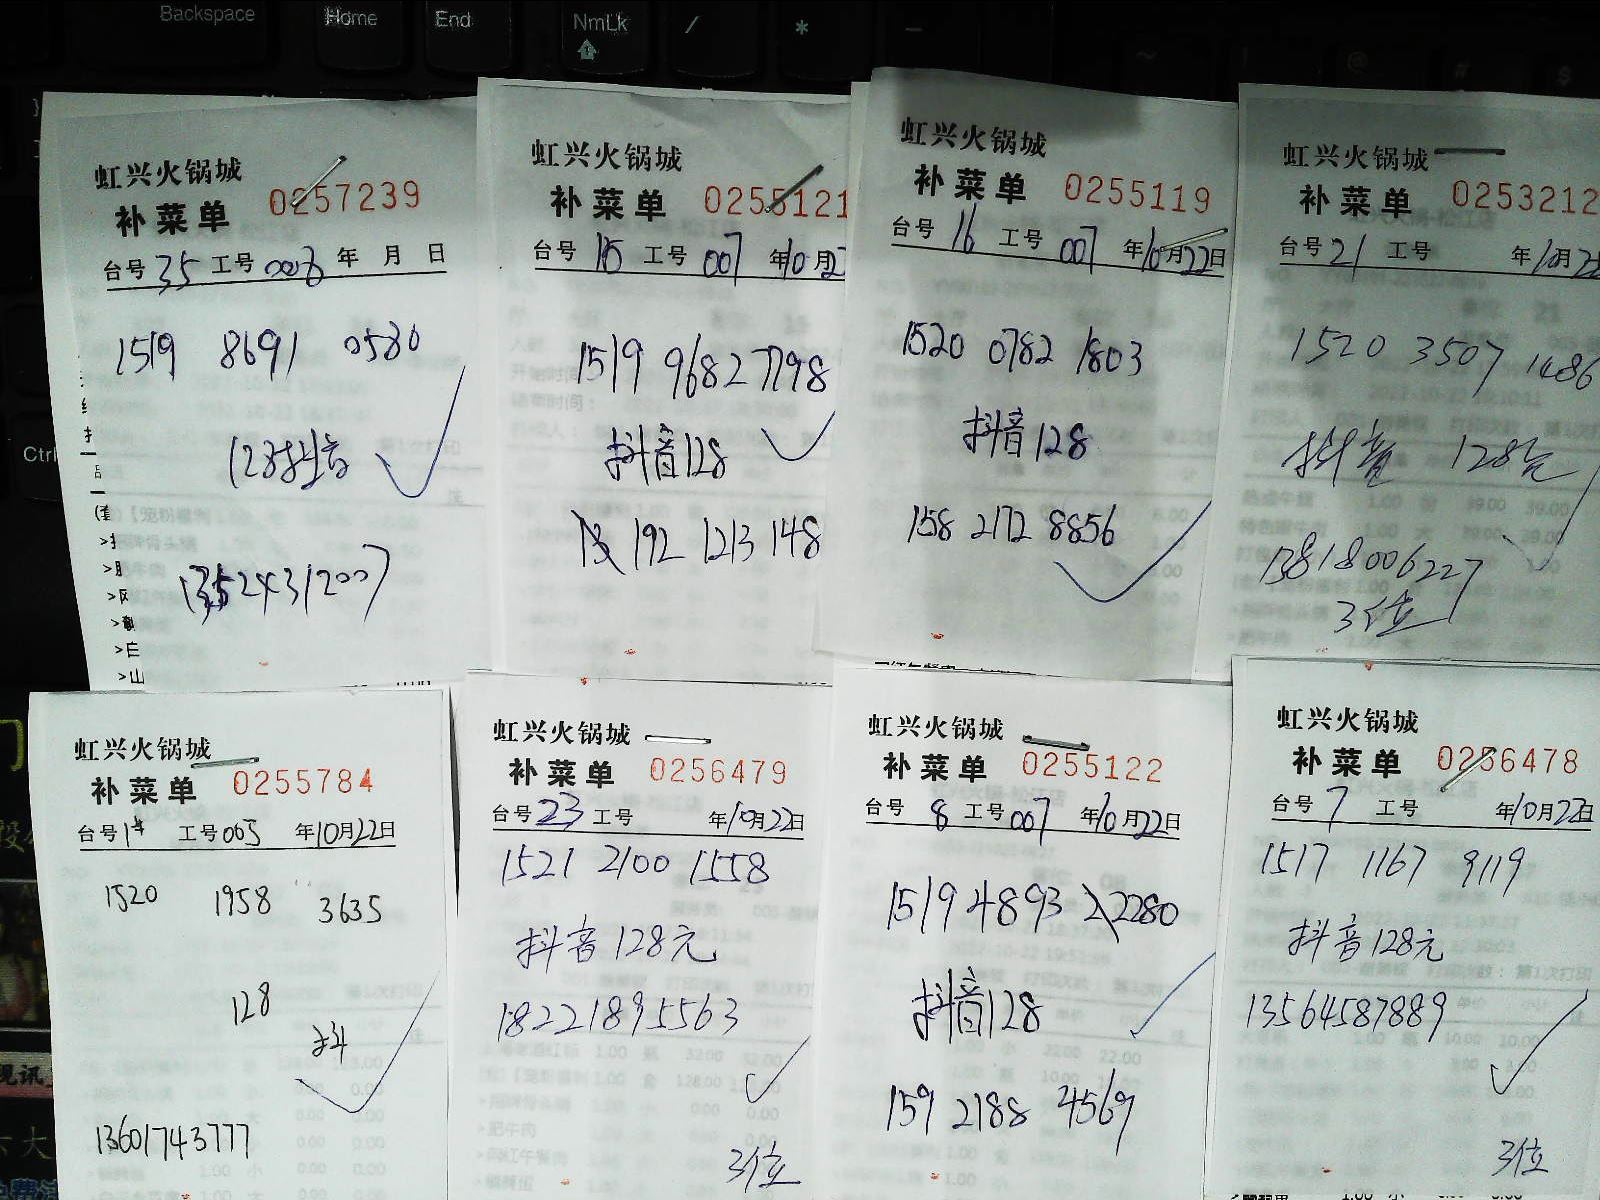 Backspace
Home
End
NmLk
/
*
Ctrl
虹兴火锅城
补菜单 0257239
台号 35 工号 008 年 月 日
1519 8691 0580
128抖音
13524312007
虹兴火锅城
补菜单 0255121
台号 15 工号 007 年10月2
1519 9682 7798
抖音128
192 1213 148
虹兴火锅城
补菜单 0255119
台号 16 工号 007 年10月22日
1520 0782 1803
抖音128
158 2172 8856
虹兴火锅城
补菜单 0253212
台号 21 工号 年10月22
1520 3507 1486
抖音 128元
13818006227
3位
虹兴火锅城
补菜单 0255784
台号 工号 005 年10月22日
1520 1958 3635
128
抖
13601743777
虹兴火锅城
补菜单 0256479
台号 23 工号 年10月22日
1521 2100 1558
抖音128元
18221895563
3位
虹兴火锅城
补菜单 0255122
台号 8 工号 007 年10月22日
1519 4893 2280
抖音128
159 2188 4569
虹兴火锅城
补菜单 0256478
台号 7 工号 年10月22日
1517 1167 9119
抖音128元
13564587889
3位